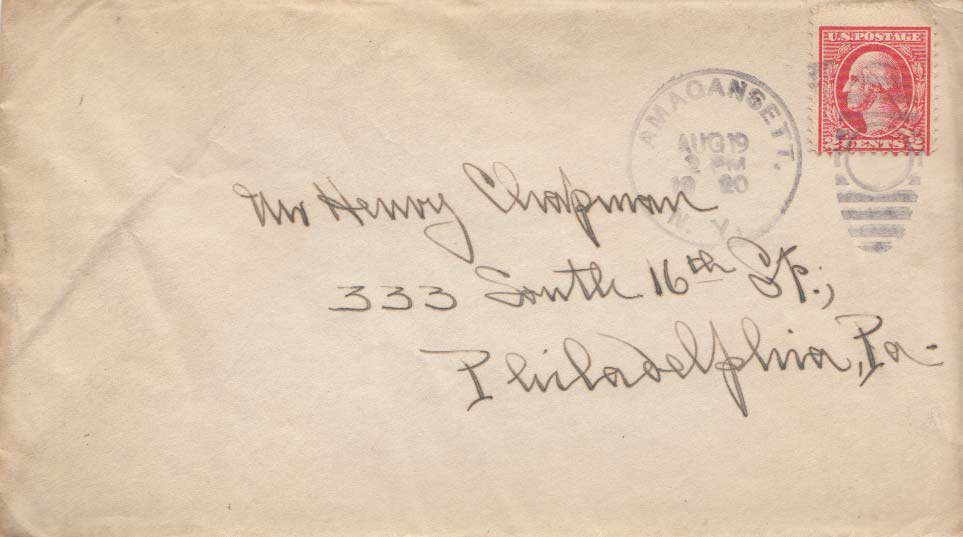 U.S. POSTAGE
2 CENTS 2
AMAGANSETT,
AUG 19
2 PM
1920
N. Y.
Mr Henry Chapman
333 South 16th St.,
Philadelphia, Pa-